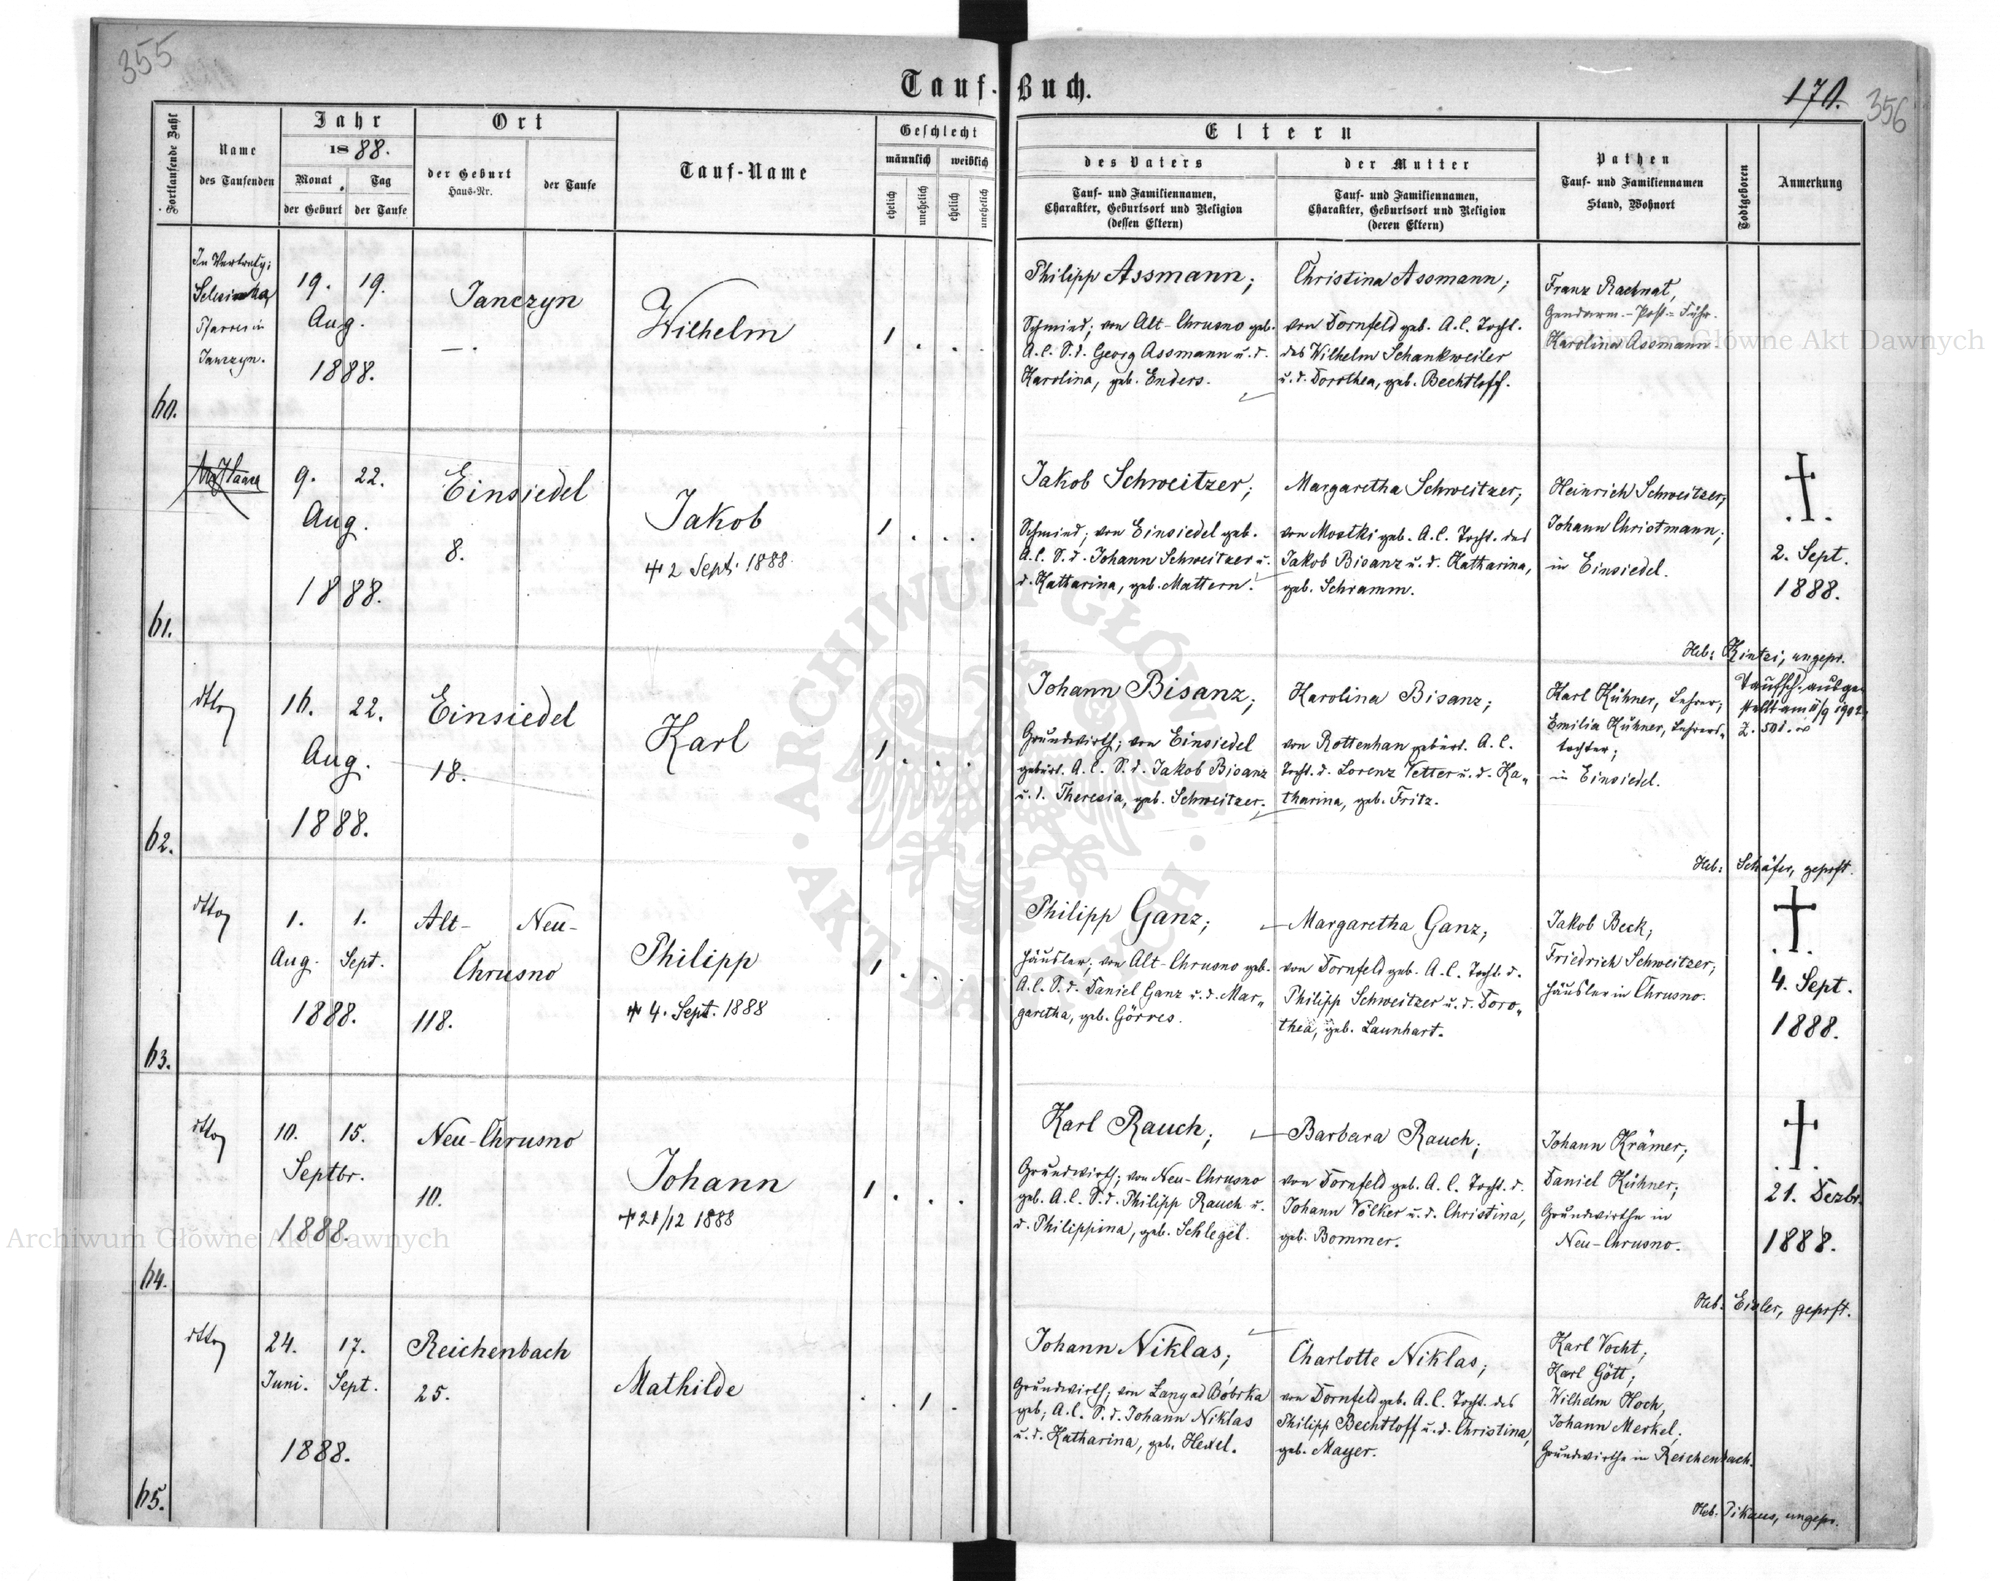 355
Tauf-Buch.
170.
356
Fortlaufende Zahl
Name
des Taufenden
Jahr
1888.
Monat
Tag
der Geburt
der Taufe
Ort
der Geburt
Haus-Nr.
der Taufe
Tauf-Name
Geschlecht
männlich
weiblich
ehelich
unehelich
ehelich
unehelich
Eltern
des Vaters
Tauf- und Familiennamen,
Charakter, Geburtsort und Religion
(dessen Eltern)
der Mutter
Tauf- und Familiennamen,
Charakter, Geburtsort und Religion
(deren Eltern)
Pathen
Tauf- und Familiennamen
Stand, Wohnort
Todtgeboren
Anmerkung
60.
Pfarrer in
Janczyn.
19. 19.
Aug.
1888.
Janczyn
— .
Wilhelm
1 . . .
Philipp Assmann;
Schmied; von Alt-Chrusno geb.
A.C. S.d. Georg Assmann u. d.
Karolina, geb. Enders.
Christina Assmann;
von Dornfeld geb. A.C. Tocht.
des Wilhelm Schankweiler
u. d. Dorothea, geb. Bechtloff.
Franz
Gendarm.-Post-Führ.
Karolina Assmann.
61.
9. 22.
Aug.
1888.
Einsiedel
8.
Jakob
2 Sept. 1888.
1 . . .
Jakob Schweitzer;
Schmied; von Einsiedel geb.
A.C. S.d. Johann Schweitzer u.
d. Katharina, geb. Mattern.
Margaretha Schweitzer;
von Mostki geb. A.C. Tocht. des
Jakob Bisanz u. d. Katharina,
geb. Schramm.
Heinrich Schweitzer,
Johann Christmann;
in Einsiedel.
2. Sept.
1888.
Heb: Kintzi, ungepr.
62.
dtto
16. 22.
Aug.
1888.
Einsiedel
18.
Karl
1 . . .
Johann Bisanz;
Grundwirth; von Einsiedel
gebürt. A.C. S.d. Jakob Bisanz
u. d. Theresia, geb. Schweitzer.
Karolina Bisanz;
von Rottenhan gebürt. A.C.
Tocht. d. Lorenz Vetter u. d. Ka-
tharina, geb. Fritz.
Karl Kühner, Lehrer;
Emilia Kühner, Lehrers-
tochter;
in Einsiedel.
Taufsch. ausge-
stellt am 11/9 1902,
Z. 501.
Heb: Schäfer, geprft.
63.
dtto
1. 1.
Aug. Sept.
1888.
Alt- Neu-
Chrusno
118.
Philipp
4. Sept. 1888
1 . . .
Philipp Ganz;
Häusler; von Alt-Chrusno geb.
A.C. S.d. Daniel Ganz u. d. Mar-
garetha, geb. Görres.
Margaretha Ganz;
von Dornfeld geb. A.C. Tocht. d.
Philipp Schweitzer u. d. Doro-
thea, geb. Launhart.
Jakob Beck;
Friedrich Schweitzer;
Häusler in Chrusno.
4. Sept.
1888.
64.
dtto
10. 15.
Septbr.
1888.
Neu-Chrusno
10.
Johann
21/12 1888
1 . . .
Karl Rauch;
Grundwirth; von Neu-Chrusno
geb. A.C. S.d. Philipp Rauch u.
d. Philippina, geb. Schlegel.
Barbara Rauch;
von Dornfeld geb. A.C. Tocht. d.
Johann Völker u. d. Christina,
geb. Bommer.
Johann Krämer;
Daniel Kühner;
Grundwirthe in
Neu-Chrusno.
21. Dezbr.
1888.
Heb: Eisler, geprft.
65.
dtto
24. 17.
Juni. Sept.
1888.
Reichenbach
25.
Mathilde
. . 1 .
Johann Niklas;
Grundwirth; von Lany ad Bóbrka
geb; A.C. S.d. Johann Niklas
u. d. Katharina, geb. Hexel.
Charlotte Niklas;
von Dornfeld geb. A.C. Tocht. des
Philipp Bechtloff u. d. Christina,
geb. Mayer.
Karl Vocht;
Karl Gött;
Wilhelm Hoch,
Johann Merkel;
Grundwirthe in Reichenbach.
Heb. Pikaus, ungepr.
Archiwum Główne Akt Dawnych
Archiwum Główne Akt Dawnych
ARCHIWUM GŁÓWNE
AKT DAWNYCH